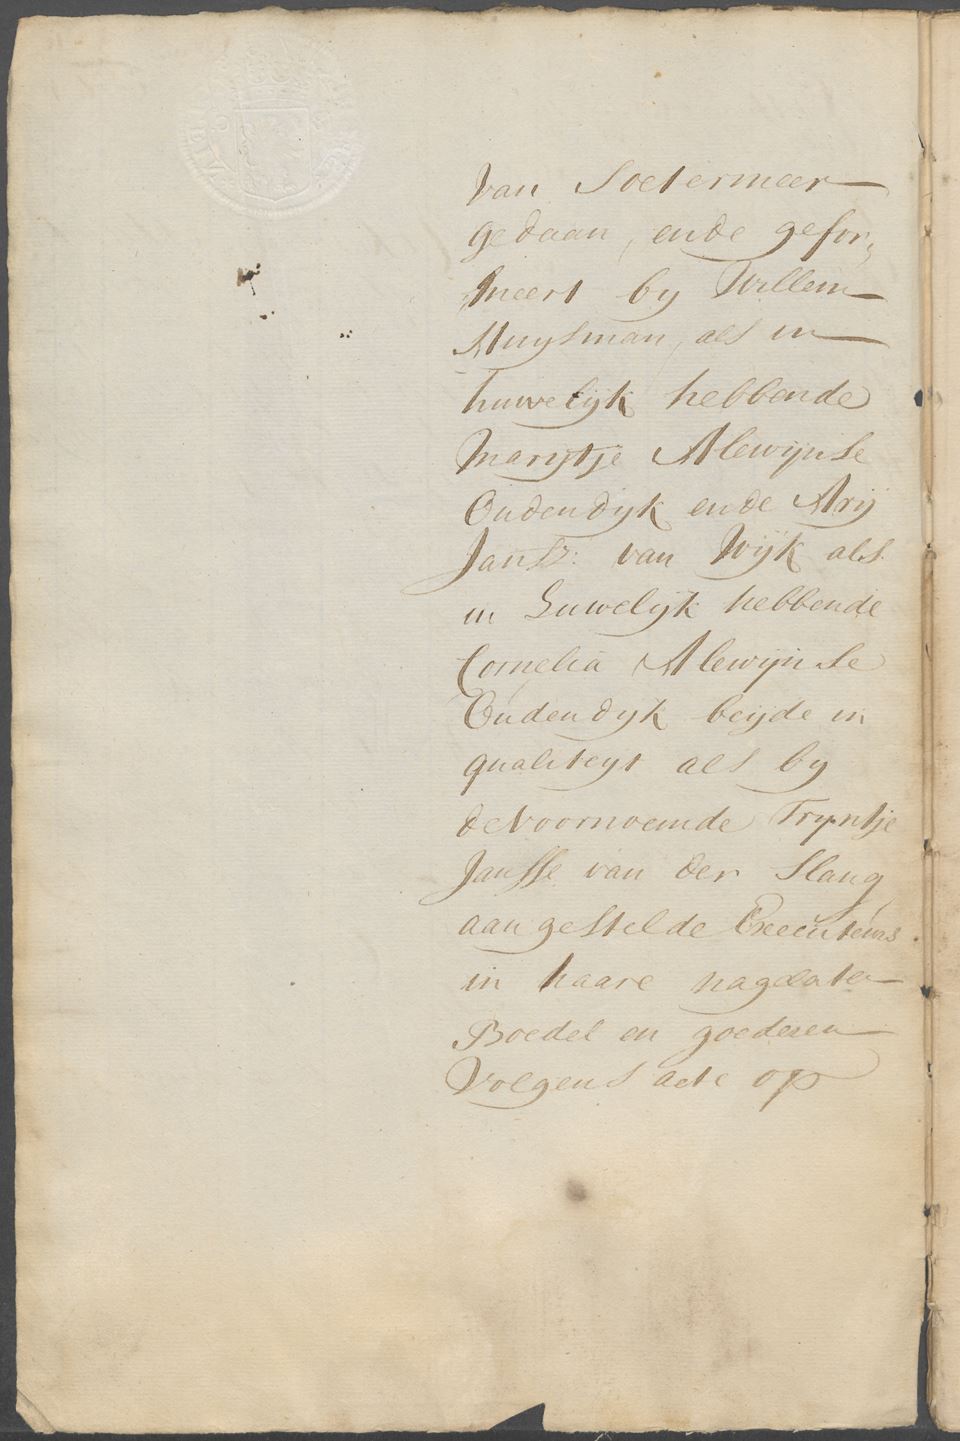 van Soetermeer
gedaan, ende gefor,
meert by Willem
Muysman, als in
huwelijk hebbende
Marijtje Alewijnse
Oudendijk ende Arij
Jansz: van Wijk als
in Huwelijk hebbende
Cornelia Alewijnse
Oudendijk beijde in
qualiteyt als by
de voornoemde Tryntje
Jansse van der Slang
aangestelde Executeurs
in haare nagelaten
Boedel en goederen
Volgens acte op